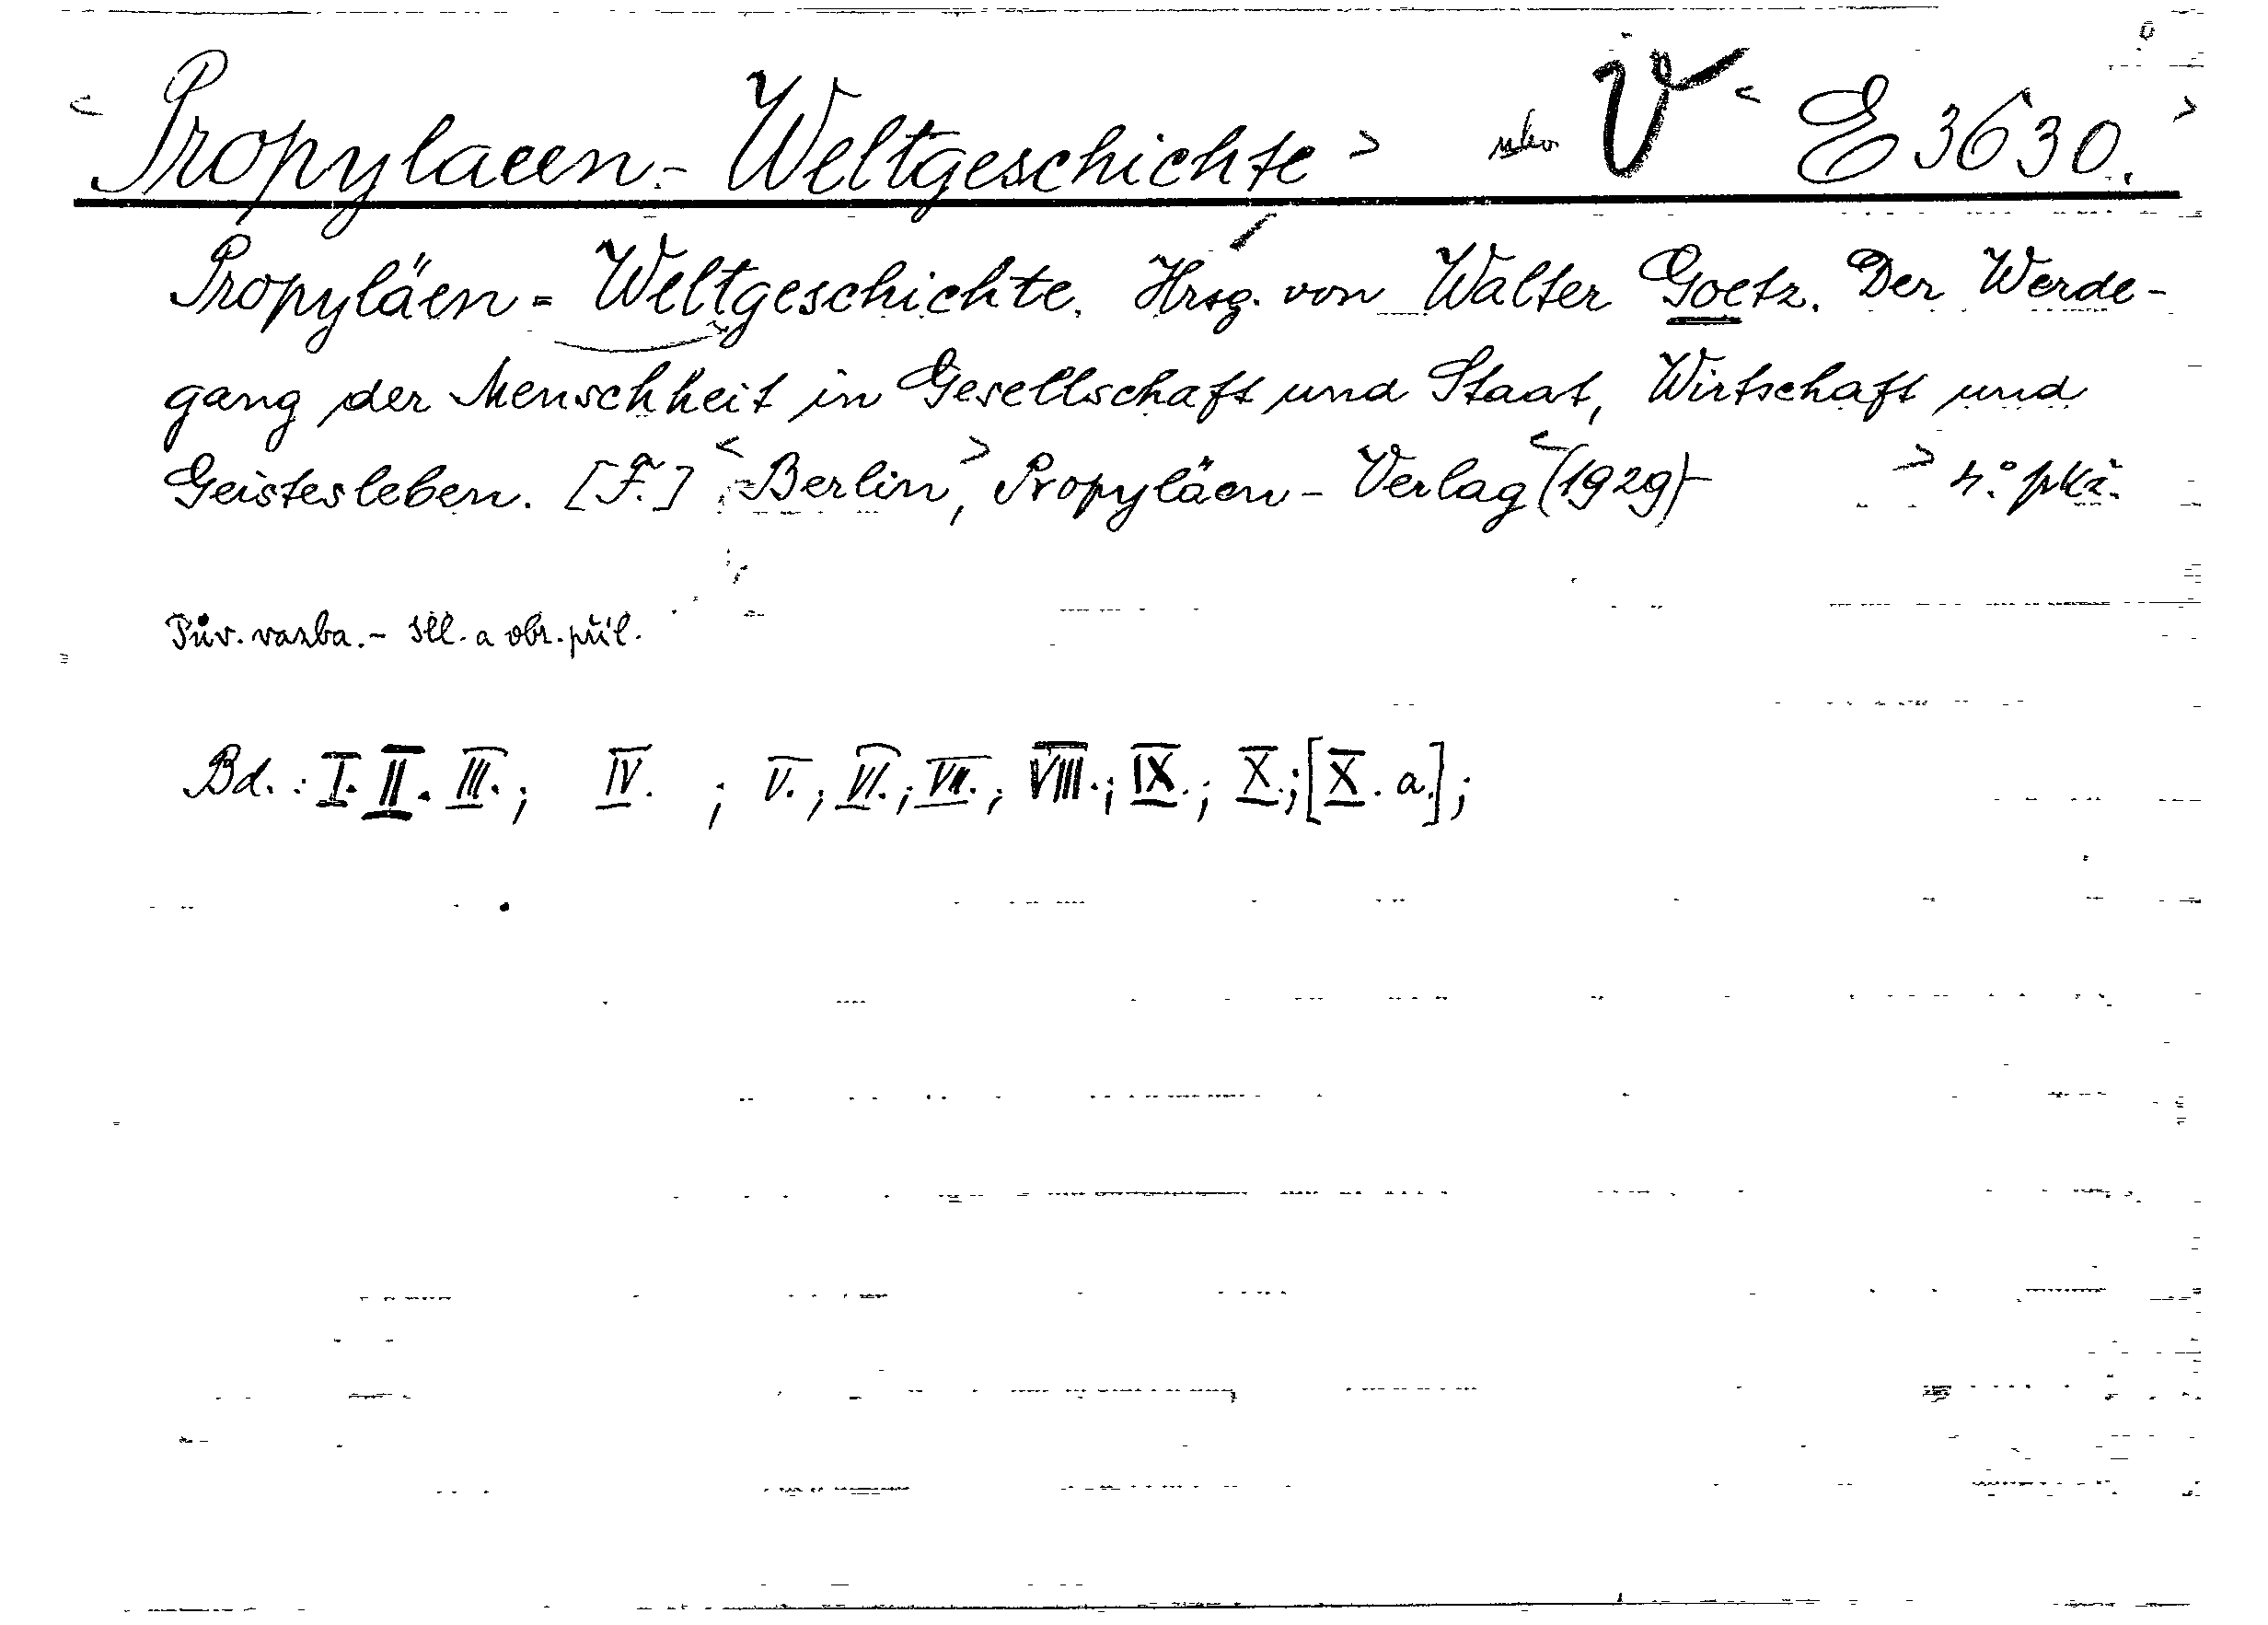 < Propylaeen - Weltgeschichte > V < E 3630. >
Propyläen = Weltgeschichte. Hrsg. von Walter Goetz. Der Werde-
gang der Menschheit in Gesellschaft und Staat, Wirtschaft und
Geistesleben. [F.] < Berlin, > Propyläen - Verlag < (1929)- > 4°.
Pův. vazba. - Ill. a obr. příl.
Bd. : I. II. III. ; IV. ; V. ; VI. ; VII. ; VIII. ; IX. ; X. ; [X. a.] ;